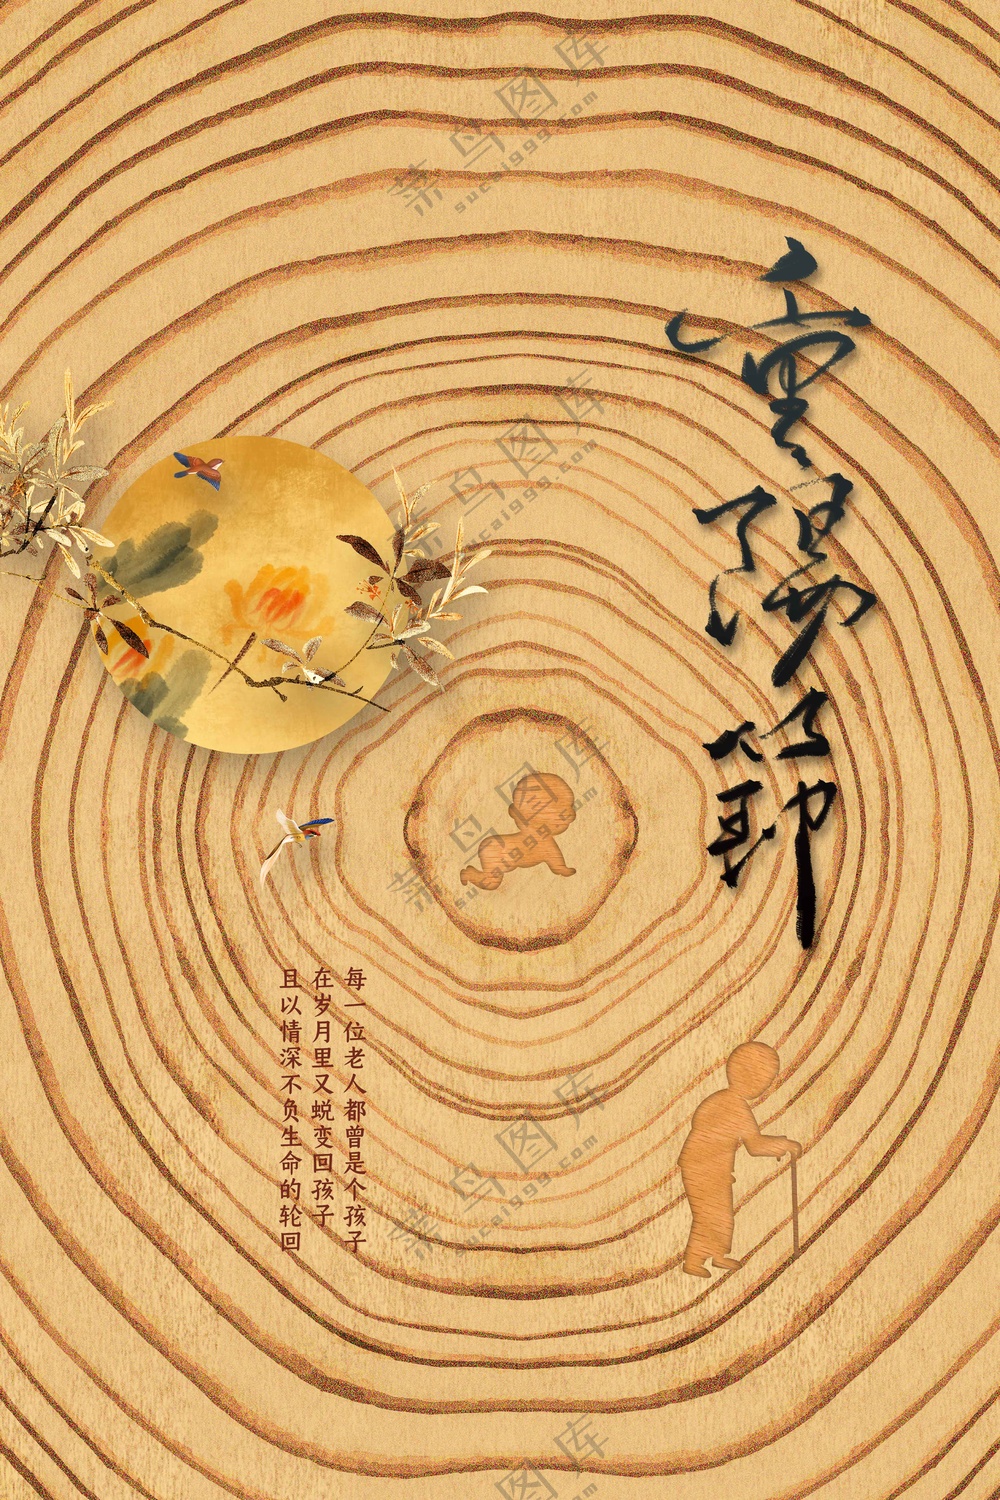 重陽節
每一位老人都曾是个孩子
在岁月里又蜕变回孩子
且以情深不负生命的轮回
菜鸟图库
sucai999.com
菜鸟图库
sucai999.com
菜鸟图库
sucai999.com
菜鸟图库
sucai999.com
图库